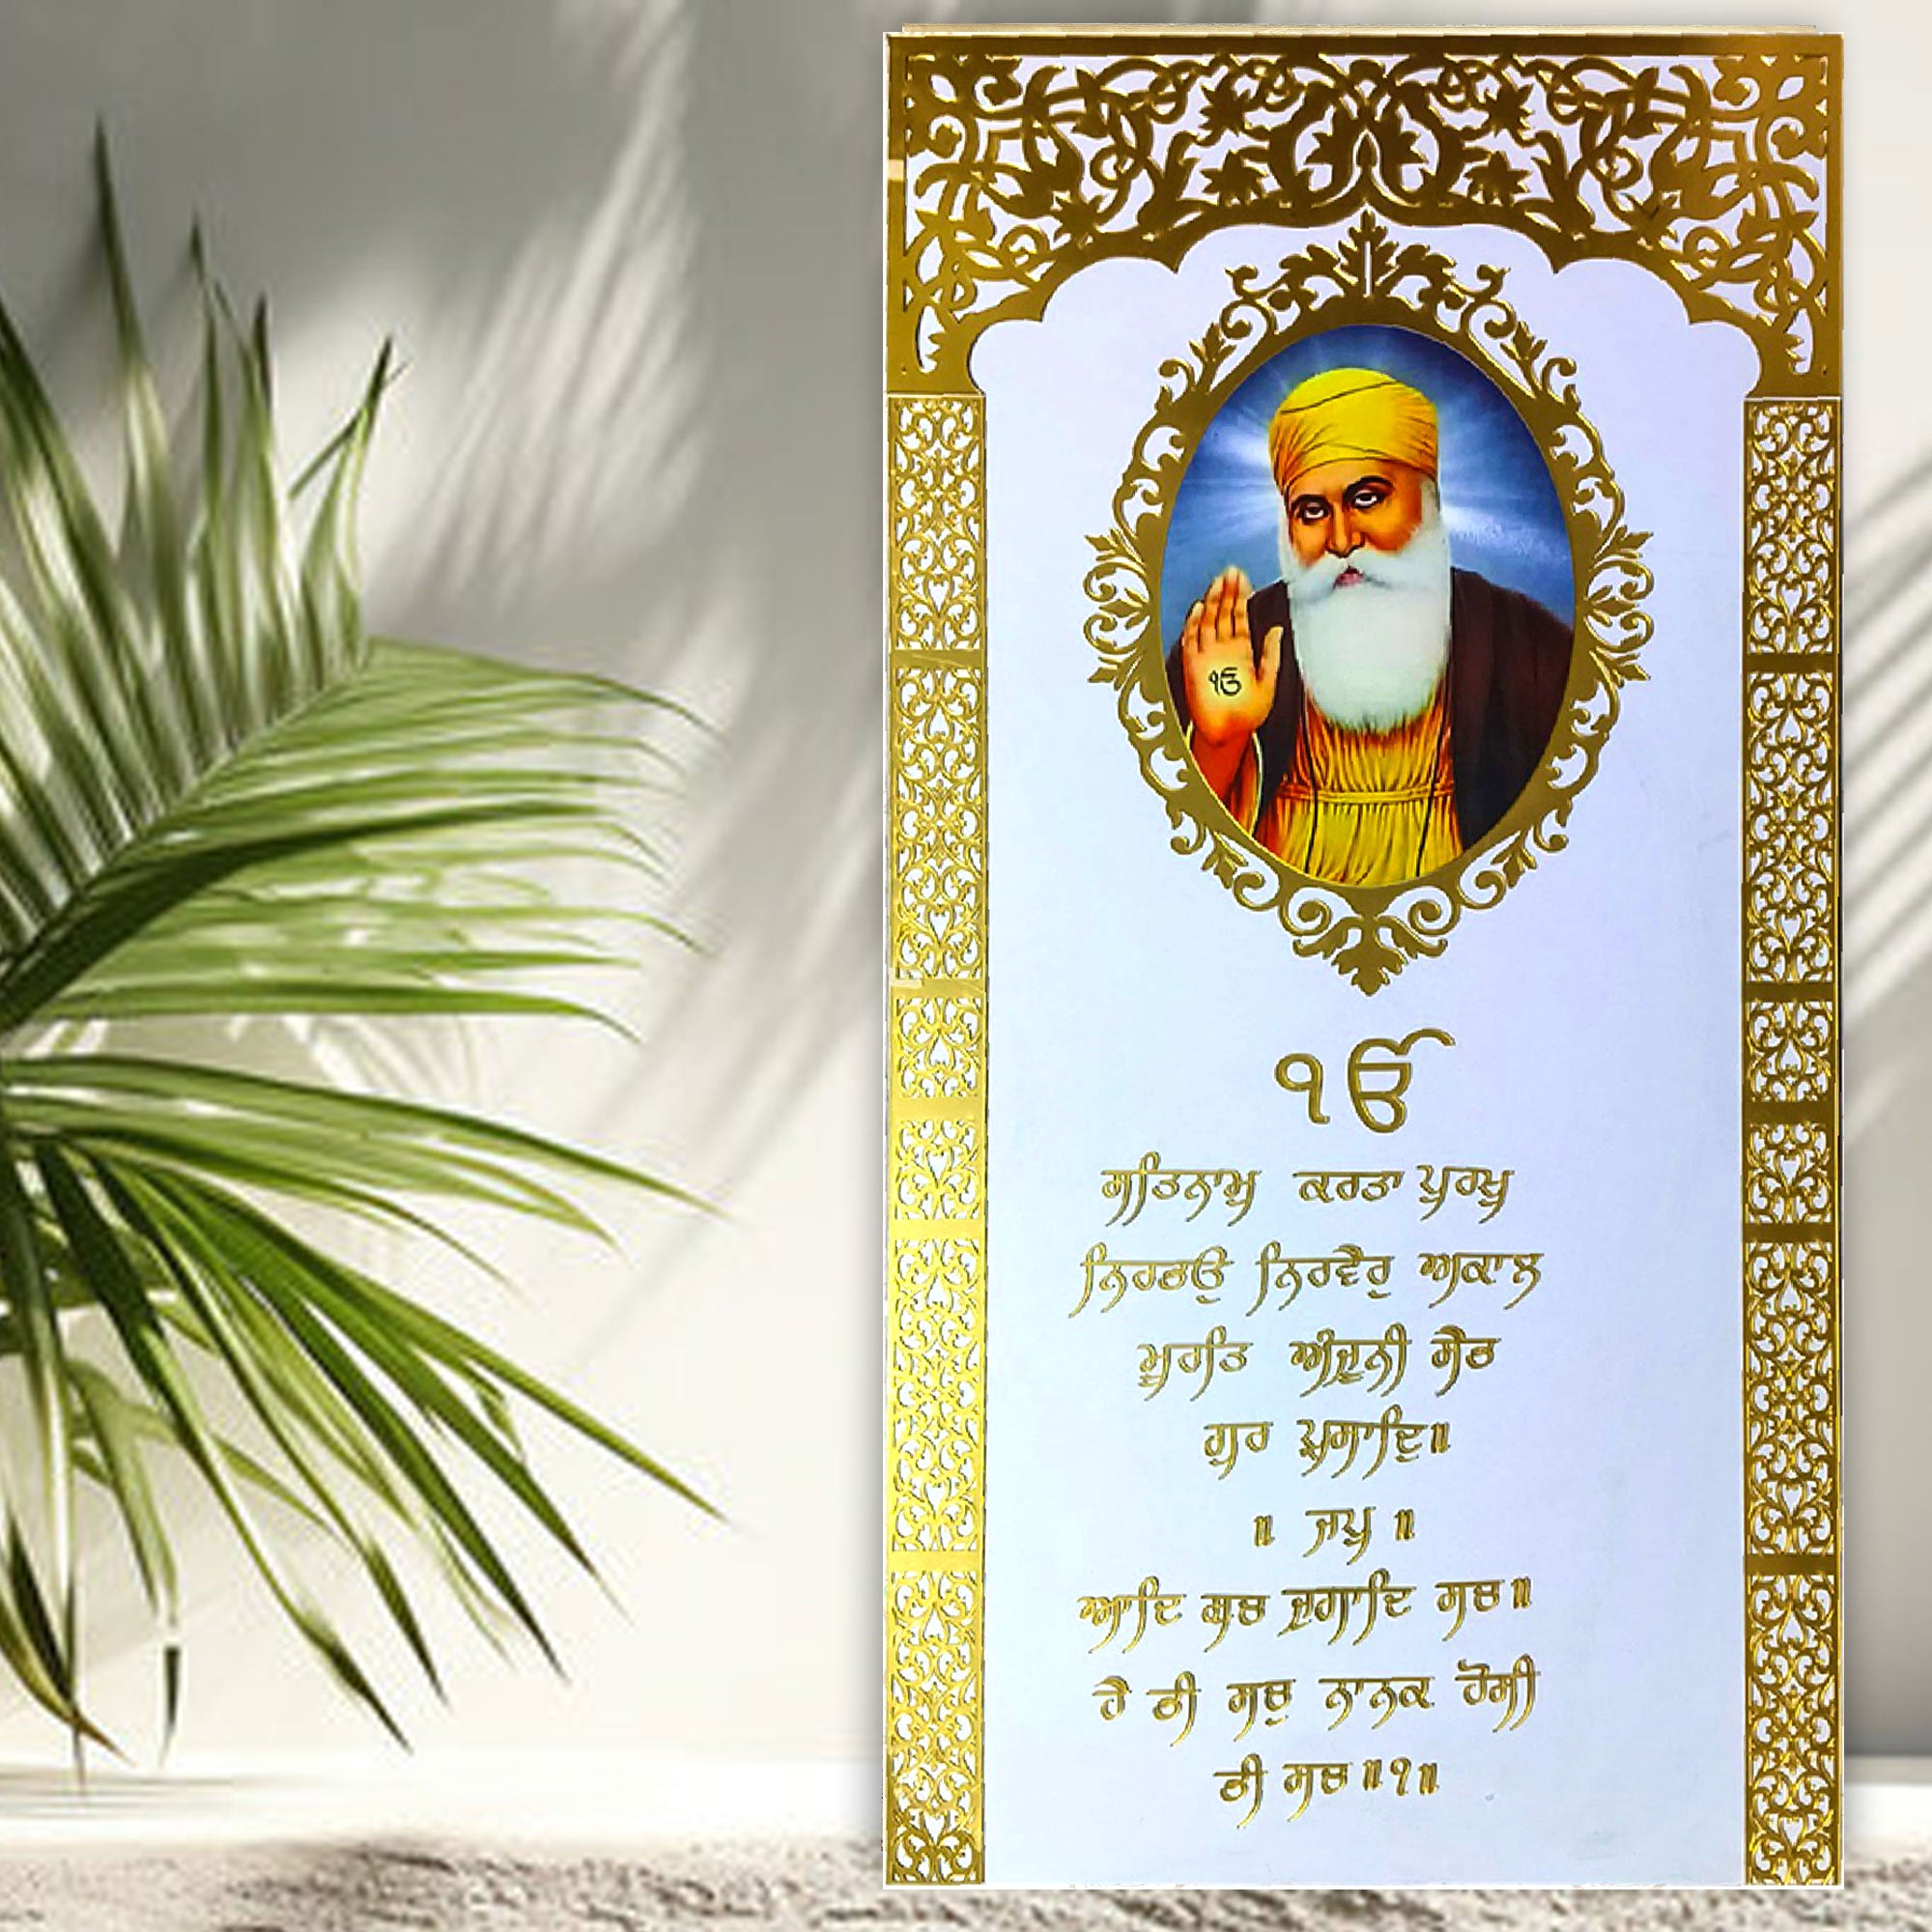 ੴ
੧ੳ
ਸਤਿਨਾਮੁ ਕਰਤਾ ਪੁਰਖੁ
ਨਿਰਭਉ ਨਿਰਵੈਰੁ ਅਕਾਲ
ਮੂਰਤਿ ਅੰਜੂਨੀ ਸੈਭ
ਗੁਰ ਪ੍ਰਸਾਦਿ॥
॥ ਜਪੁ ॥
ਆਦਿ ਸਚੁ ਜੁਗਾਦਿ ਸਚੁ॥
ਹੈ ਭੀ ਸਚੁ ਨਾਨਕ ਹੋਸੀ
ਭੀ ਸਚੁ॥੧॥